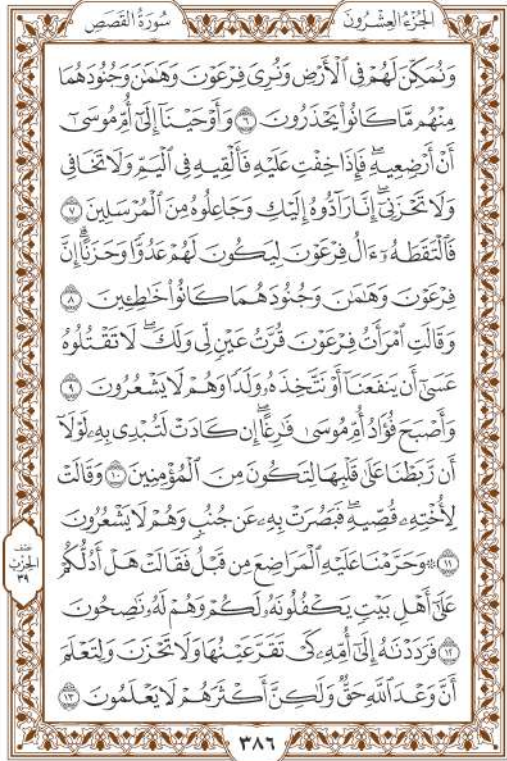 الجُزْءُ العِشْرُونَ
سُورَةُ القَصَصِ
وَنُمَكِّنَ لَهُمْ فِى ٱلْأَرْضِ وَنُرِىَ فِرْعَوْنَ وَهَـٰمَـٰنَ وَجُنُودَهُمَا
مِنْهُم مَّا كَانُوا۟ يَحْذَرُونَ ٦ وَأَوْحَيْنَآ إِلَىٰٓ أُمِّ مُوسَىٰٓ
أَنْ أَرْضِعِيهِ ۖ فَإِذَا خِفْتِ عَلَيْهِ فَأَلْقِيهِ فِى ٱلْيَمِّ وَلَا تَخَافِى
وَلَا تَحْزَنِىٓ ۖ إِنَّا رَآدُّوهُ إِلَيْكِ وَجَاعِلُوهُ مِنَ ٱلْمُرْسَلِينَ ٧
فَٱلْتَقَطَهُۥٓ ءَالُ فِرْعَوْنَ لِيَكُونَ لَهُمْ عَدُوًّا وَحَزَنًا ۗ إِنَّ
فِرْعَوْنَ وَهَـٰمَـٰنَ وَجُنُودَهُمَا كَانُوا۟ خَـٰطِـِٔينَ ٨
وَقَالَتِ ٱمْرَأَتُ فِرْعَوْنَ قُرَّتُ عَيْنٍ لِّى وَلَكَ ۖ لَا تَقْتُلُوهُ
عَسَىٰٓ أَن يَنفَعَنَآ أَوْ نَتَّخِذَهُۥ وَلَدًا وَهُمْ لَا يَشْعُرُونَ ٩
وَأَصْبَحَ فُؤَادُ أُمِّ مُوسَىٰ فَـٰرِغًا ۖ إِن كَادَتْ لَتُبْدِى بِهِۦ لَوْلَآ
أَن رَّبَطْنَا عَلَىٰ قَلْبِهَا لِتَكُونَ مِنَ ٱلْمُؤْمِنِينَ ١٠ وَقَالَتْ
لِأُخْتِهِۦ قُصِّيهِ ۖ فَبَصُرَتْ بِهِۦ عَن جُنُبٍ وَهُمْ لَا يَشْعُرُونَ
١١ ۞ وَحَرَّمْنَا عَلَيْهِ ٱلْمَرَاضِعَ مِن قَبْلُ فَقَالَتْ هَلْ أَدُلُّكُمْ
عَلَىٰٓ أَهْلِ بَيْتٍ يَكْفُلُونَهُۥ لَكُمْ وَهُمْ لَهُۥ نَـٰصِحُونَ
١٢ فَرَدَدْنَـٰهُ إِلَىٰٓ أُمِّهِۦ كَىْ تَقَرَّ عَيْنُهَا وَلَا تَحْزَنَ وَلِتَعْلَمَ
أَنَّ وَعْدَ ٱللَّهِ حَقٌّ وَلَـٰكِنَّ أَكْثَرَهُمْ لَا يَعْلَمُونَ ١٣
نصف
الحزب
٣٩
٣٨٦